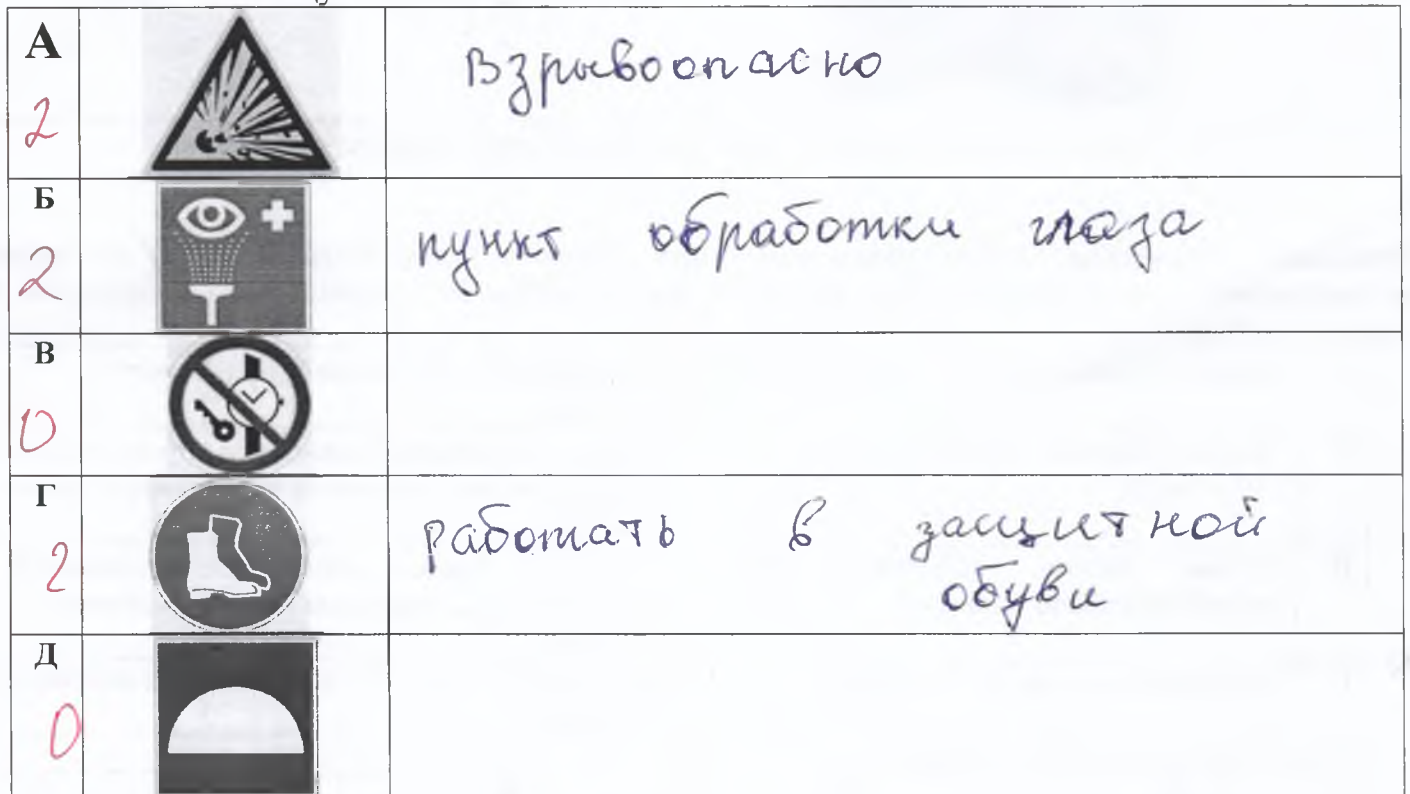 А
2
Взрывоопасно
Б
2
пункт обработки глаза
В
0
Г
2
работать в защитной
обуви
Д
0